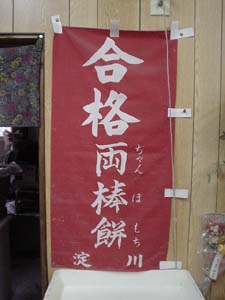 合格両棒餅
ぢゃんぼもち
淀川